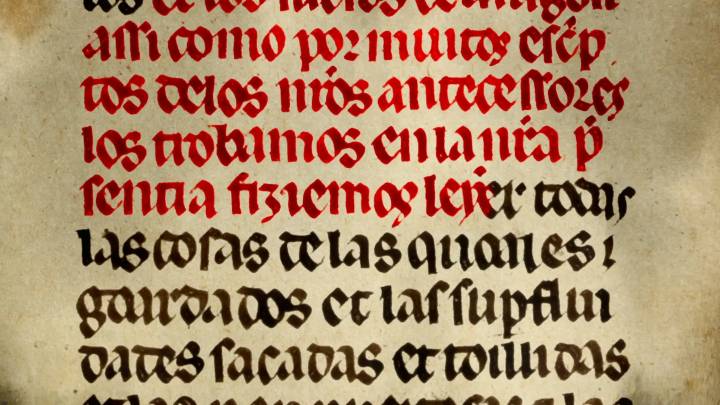 tos et los fueros de aragon
assi como por muitos esc̄p
tos delos nr̄os antecessores
los trobamos en la nr̄a p̄
sentia fiziemos leyer todas
las cosas de las quales i
gardados et las supflui
dates sacadas et tollidas